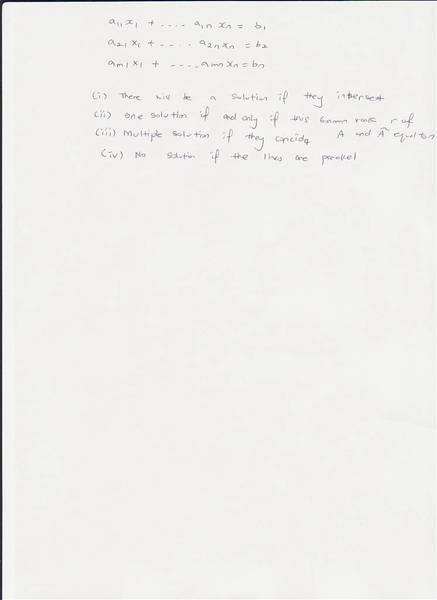 a11 x1 + .... a1n xn = b1
a21 x1 + .... a2n xn = b2
am1 x1 + ....amn xn = bn
(i) There will be a solution if they intersect
(ii) one solution if and only if this common rank r of
A and Ã equal to n
(iii) Multiple solution if they concide
(iv) No solution if the lines are parallel